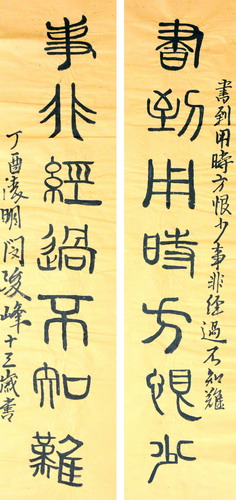 書到用時方恨少
書到用時方恨少事非經過不知難
事非經過不知難
丁酉凌明閔璇峰十三歲書